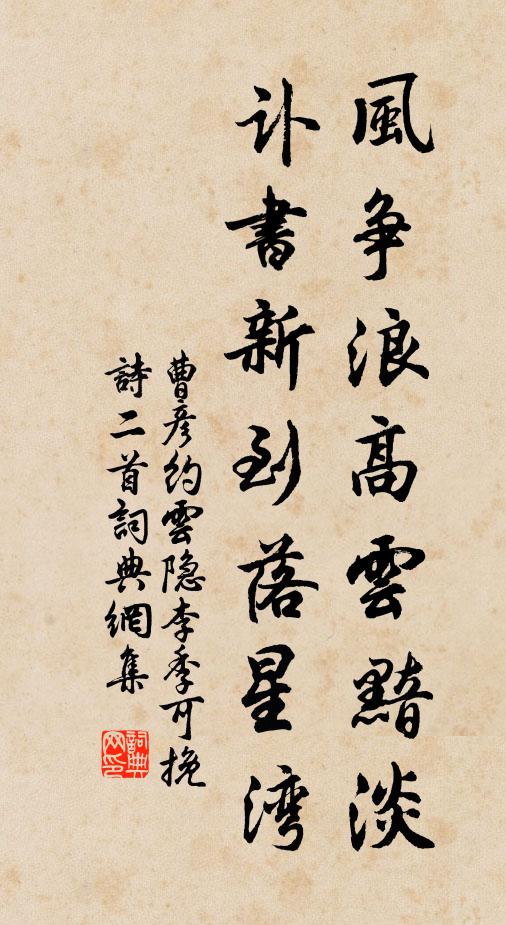 風争浪高雲黯淡
訃書新到落星湾
曹彦約雲隐李季可挽
詩二首詞典網集
詞典網印